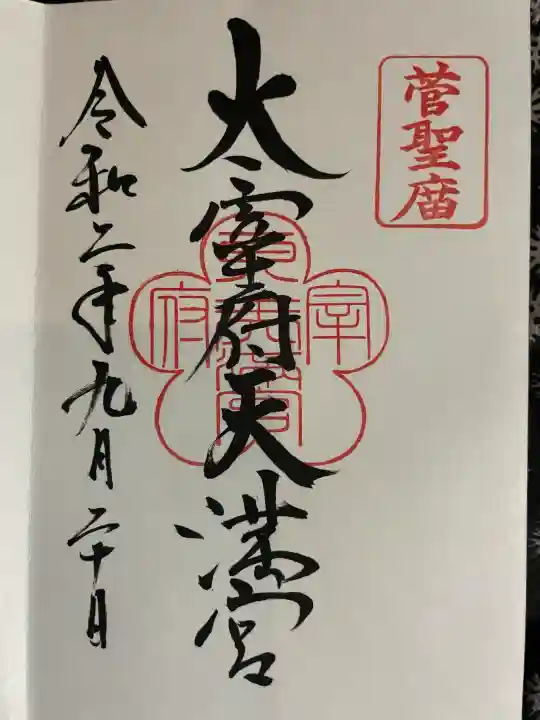 菅聖庿
太宰府天満宮
令和二年九月二十日